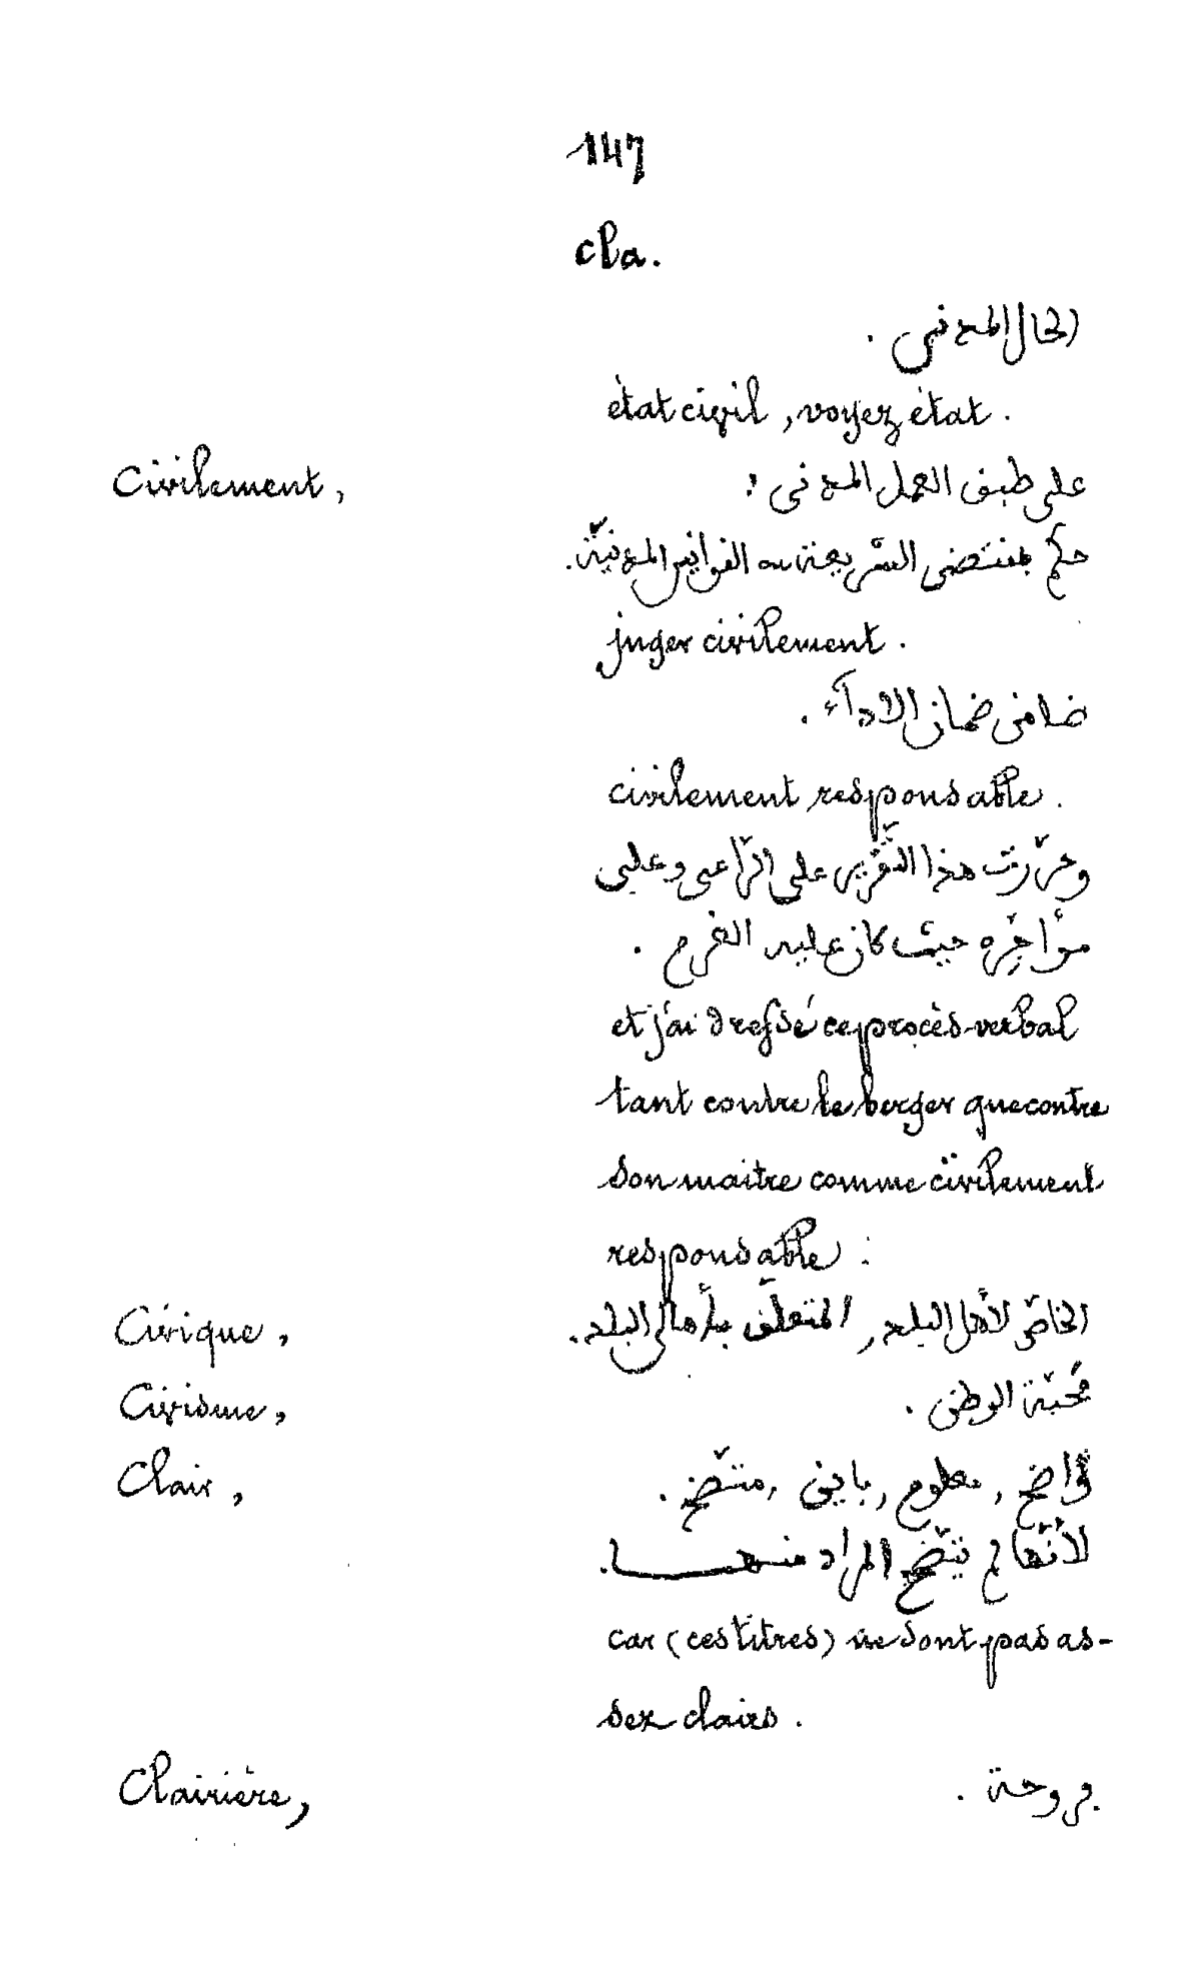 147
cla.
الحال المدني .
état civil, voyez état.
Civilement, على طبق العمل المدني ;
حكم بمقتضى الشريعة القوانين المدنيّة.
juger civilement.
ضامن ضمان الاداآء .
civilement responsable.
وحرّرت هذا التّقرير على الرّاعى وعلى
مؤاجره حيث كان عليه الغرم .
et j'ai dressé ce procès-verbal
tant contre le berger que contre
son maitre comme civilement
responsable.
Civique, الخاصّ لأهل البلد, المتعلّق بأهالى البلد.
Civisme, مَحبّة الوطن .
Clair, واضح, معلوم, باين, متّضح .
لأنّها لم يتّضح المراد منهـــا.
car (ces titres) ne sont pas as-
sez clairs.
Clairière,